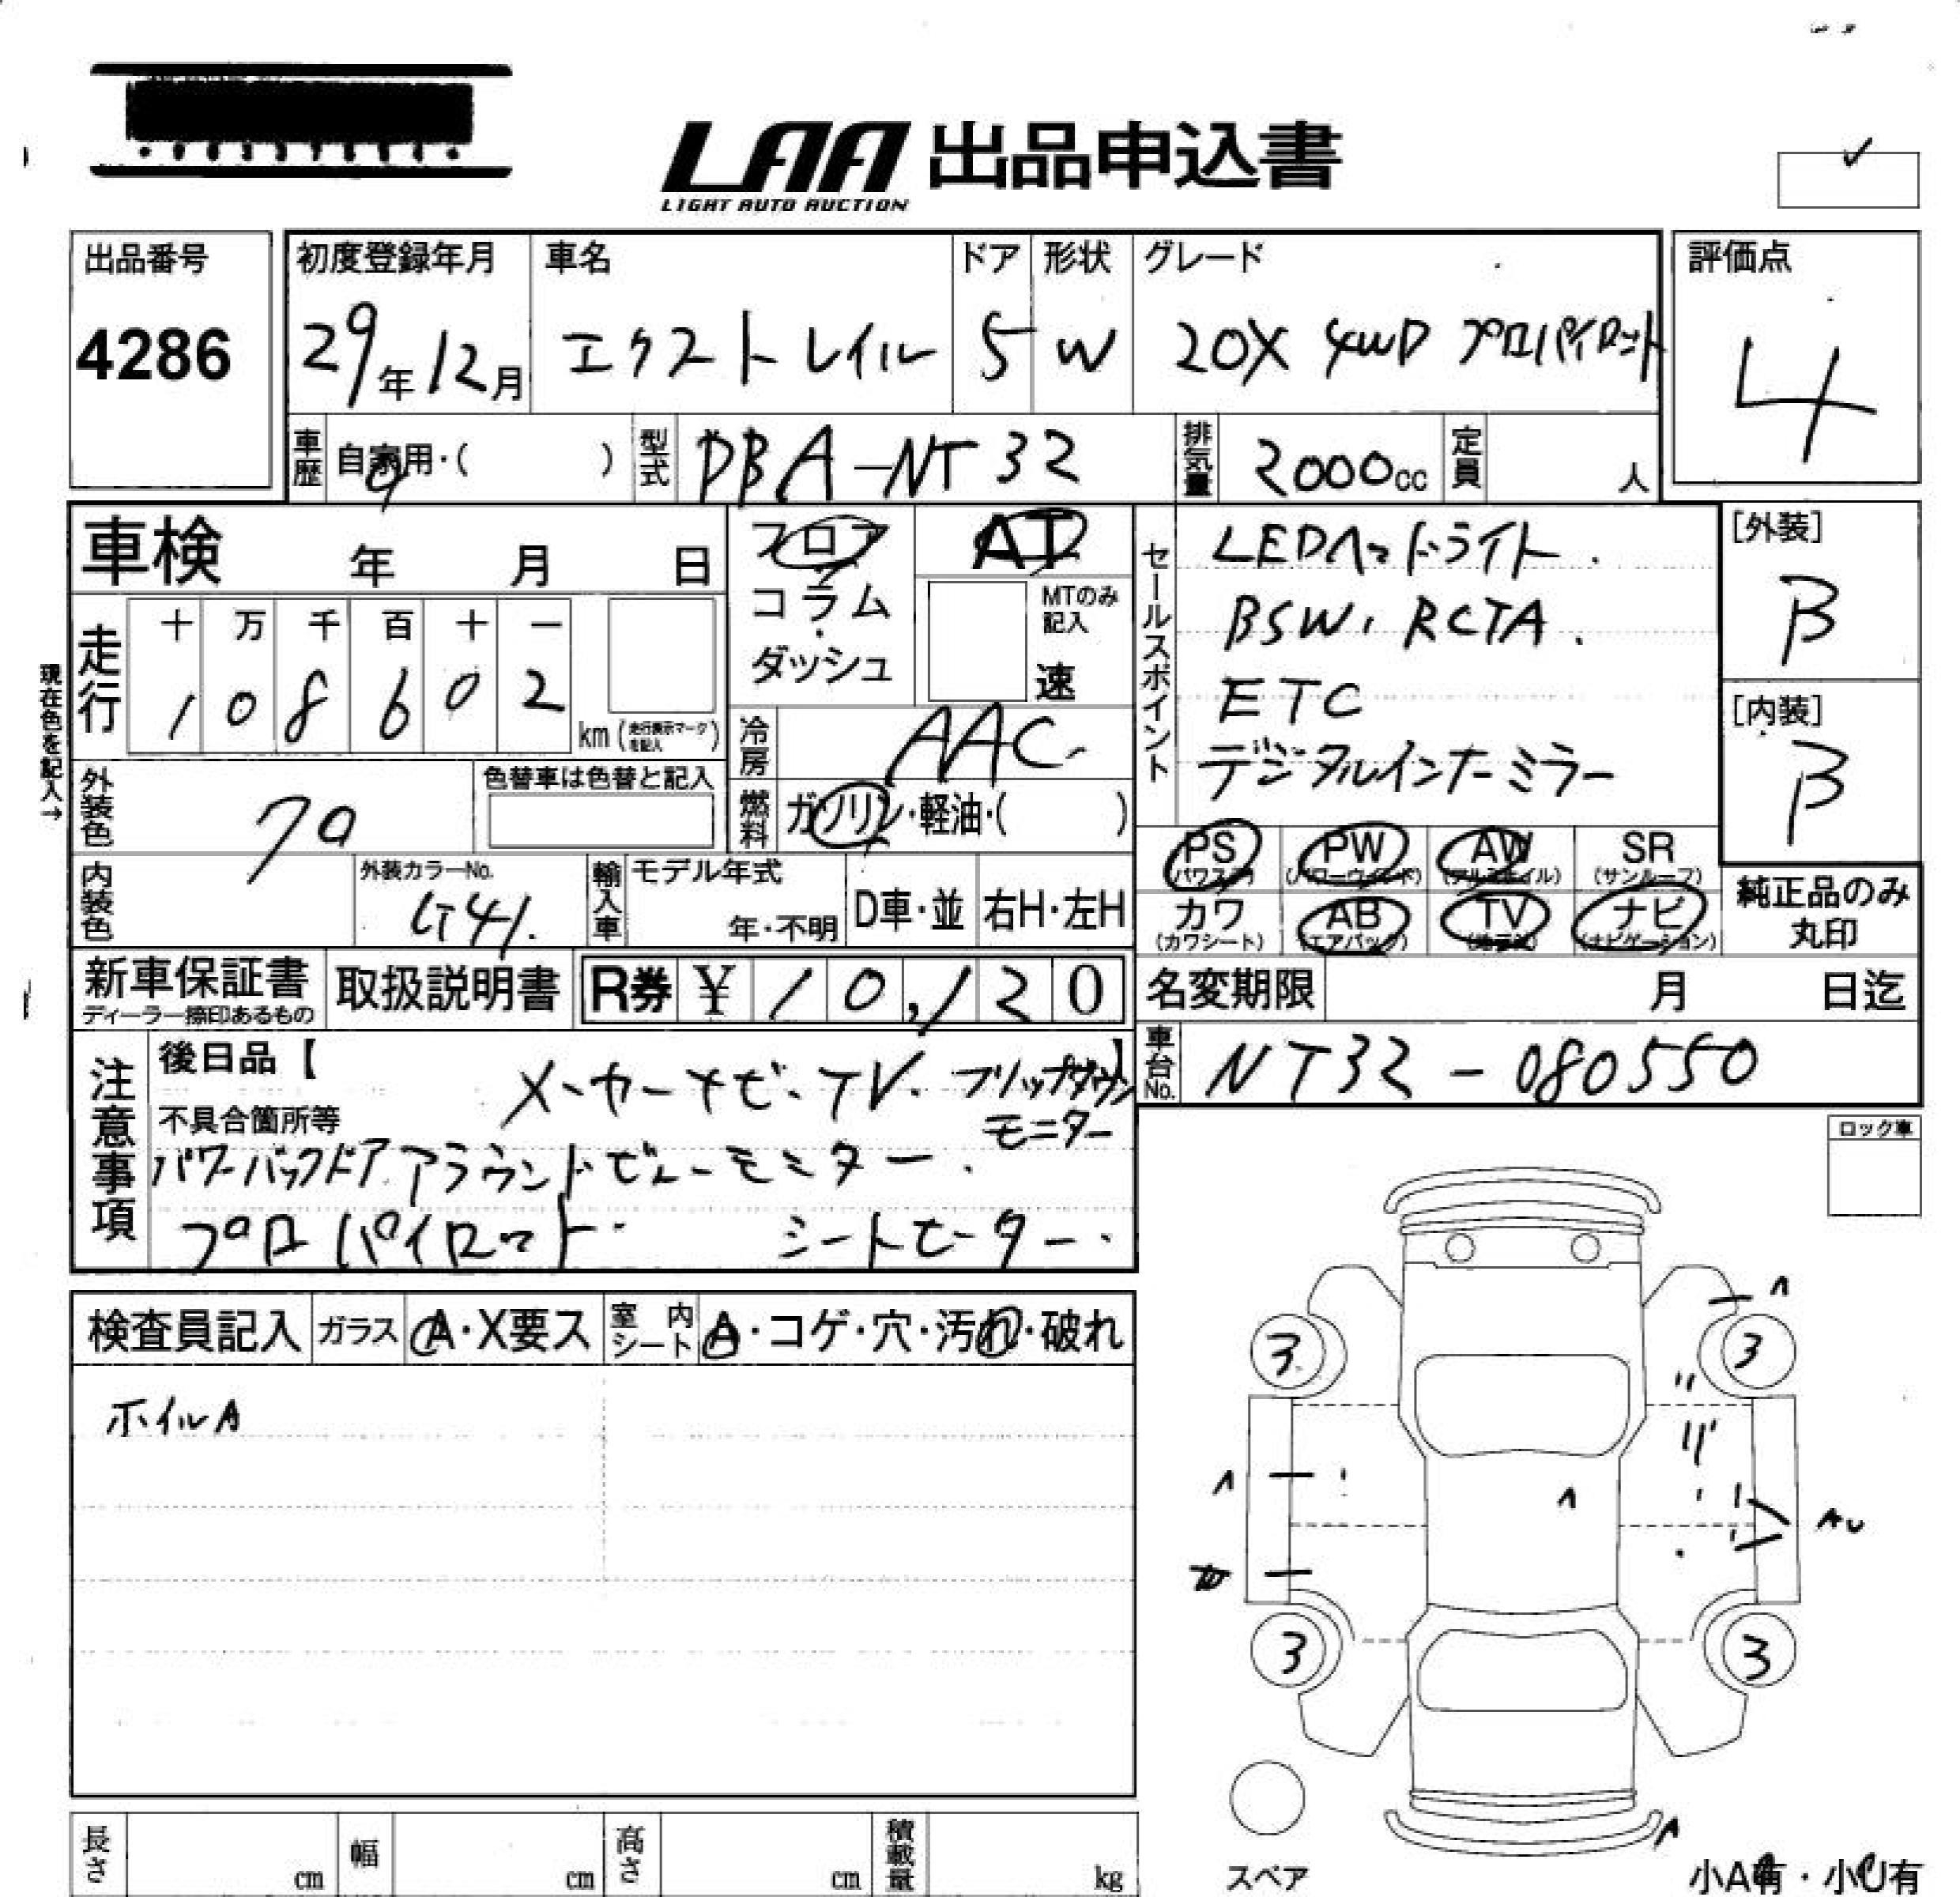 LAA 出品申込書
LIGHT AUTO AUCTION
出品番号
4286
初度登録年月
29年12月
車名
エクストレイル
ドア
5
形状
W
グレード
20X 4WD プロパイロット
評価点
4
車歴
自家用・( )
型式
DBA-NT32
排気量
2000cc
定員
人
車検 年 月 日
フロア
コラム
・
ダッシュ
AT
MTのみ
記入
速
セールスポイント
LEDヘッドライト.
BSW, RCTA.
ETC
デジタルインナーミラー
[外装]
B
[内装]
B
現在色を記入→
走行
十 万 千 百 十 一
1 0 8 6 0 2
km(走行表示マークを記入)
冷房
AAC
外装色
色替車は色替と記入
燃料
ガソリン・軽油・( )
PS
(パワステ)
PW
(パワーウインド)
AW
(アルミホイル)
SR
(サンルーフ)
カワ
(カワシート)
AB
(エアバック)
TV
ナビ
(ナビゲーション)
純正品のみ
丸印
内装色
外装カラーNo.
G41.
輸入車
モデル年式
年・不明
D車・並
右H・左H
新車保証書
ディーラー捺印あるもの
取扱説明書
R券 ¥10,120
名変期限 月 日迄
車台No.
NT32-080550
注意事項
後日品【 】
メーカーナビ・TV. フリップダウン
モニター
不具合箇所等
パワーバックドア アラウンドビューモニター.
プロパイロット. シートヒーター.
ロック車
検査員記入
ガラス
A・X要ス
室内シート
A・コゲ・穴・汚れ・破れ
ホイルA
A
3 3
A
A
AU
3 3
A
スペア
小A有・小U有
長さ cm
幅 cm
高さ cm
積載量 kg